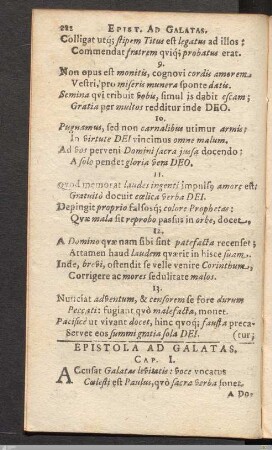 222 EPIST. AD GALATAS.
Colligat utq; stipem Titus est legatus ad illos:
Commendat fratrem qviq; probatus erat.
9.
Non opus est monitis, cognovi cordis amorem
Vestri, pro miseris munera sponte datis.
Semina qvi tribuit vobis, simul is dabit escam;
Gratia per multos redditur inde DEO.
10.
Pugnamus, sed non carnalibus utimur armis:
In virtute DEI vincimus omne malum.
Ad vos perveni Domini sacra jussa docendo:
A solo pendet gloria vera DEO.
11.
Qvod memorat laudes ingenti impulsus amore est:
Gratuitò docuit cœlica verba DEI.
Depingit proprio falsosq; colore Prophetas:
Qvæ mala sit reprobo passus in orbe, docet.
12.
A Domino qvæ nam sibi sint patefacta recenset;
Attamen haud laudem qværit in hisce suam.
Inde, brevi, ostendit se velle venire Corinthum,
Corrigere ac mores sedulitate malos.
13.
Nunciat adventum, & censorem se fore durum
Peccati: fugiant qvò malefacta, monet.
Pacificè ut vivant docet, hinc quoq; fausta preca-
Servet eos summi gratia sola DEI. (tur;
EPISTOLA AD GALATAS,
CAP. I.
ACcusat Galatas levitatis: voce vocatus
Cœlesti est Paulus, qvò sacra verba sonet.
A Do-